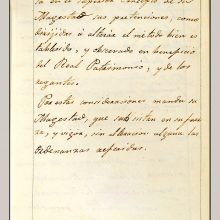 sa en el supremo Consejo de su
Magestad sus pretenciones, como
dirijidas á alterar el método bien es
tablecido, y observado en beneficio
del Real Patrimonio, y de los
regantes.
Por estas consideraciones manda su
Magestad, que subsistan en su fuer
za, y vigor, sin alteracion alguna las
Ordenanzas referidas.